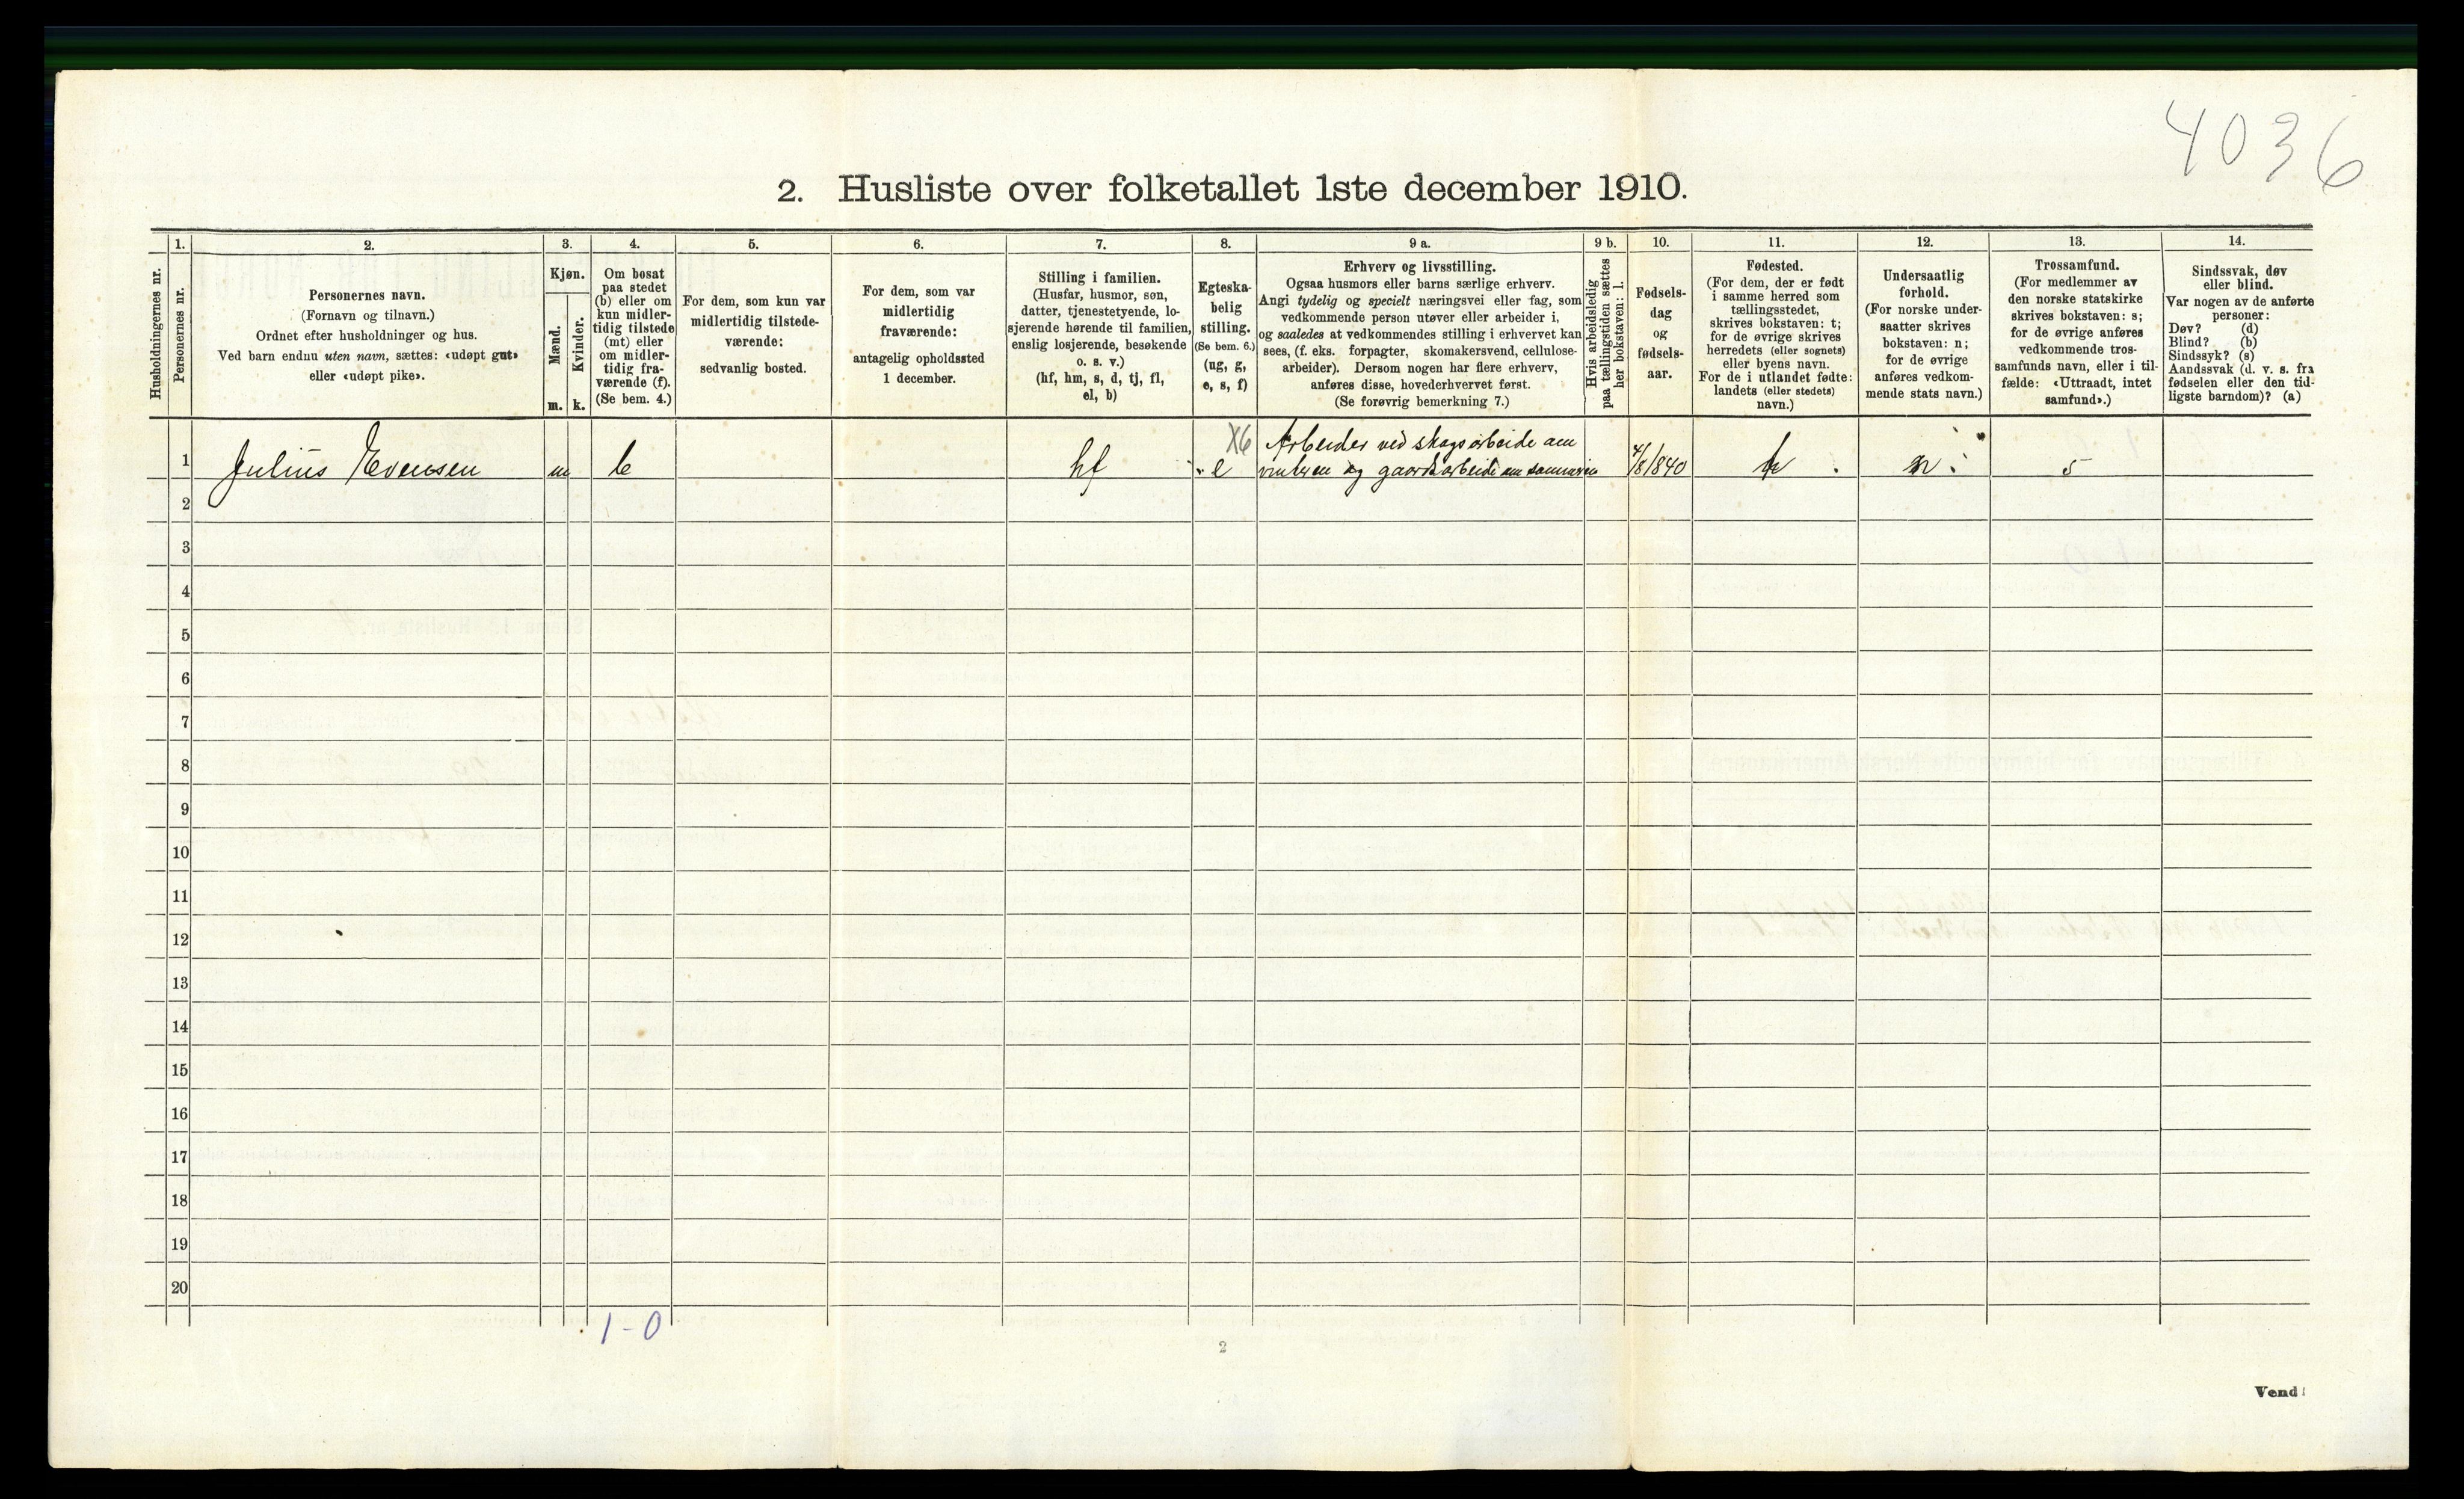 4036
2. Husliste over folketallet 1ste december 1910.
Husholdningernes nr.
1.
Personernes nr.
2.
Personernes navn.
(Fornavn og tilnavn.)
Ordnet efter husholdninger og hus.
Ved barn endnu uten navn, sættes: «udøpt gut»
eller «udøpt pike».
3.
Kjøn.
Mænd.
Kvinder.
m. k.
4.
Om bosat
paa stedet
(b) eller om
kun midler-
tidig tilstede
(mt) eller
om midler-
tidig fra-
værende (f).
(Se bem. 4.)
5.
For dem, som kun var
midlertidig tilstede-
værende:
sedvanlig bosted.
6.
For dem, som var
midlertidig
fraværende:
antagelig opholdssted
1 december.
7.
Stilling i familien.
(Husfar, husmor, søn,
datter, tjenestetyende, lo-
sjerende hørende til familien,
enslig losjerende, besøkende
o. s. v.)
(hf, hm, s, d, tj, fl,
el, b)
8.
Egteska-
belig
stilling.
(Se bem. 6.)
(ug, g,
e, s, f)
9 a.
Erhverv og livsstilling.
Ogsaa husmors eller barns særlige erhverv.
Angi tydelig og specielt næringsvei eller fag, som
vedkommende person utøver eller arbeider i,
og saaledes at vedkommendes stilling i erhvervet kan
sees, (f. eks. forpagter, skomakersvend, cellulose-
arbeider). Dersom nogen har flere erhverv,
anføres disse, hovederhvervet først.
(Se forøvrig bemerkning 7.)
9 b.
Hvis arbeidsledig
paa tællingstiden sættes
her bokstaven: l.
10.
Fødsels-
dag
og
fødsels-
aar.
11.
Fødested.
(For dem, der er født
i samme herred som
tællingsstedet,
skrives bokstaven: t;
for de øvrige skrives
herredets (eller sognets)
eller byens navn.
For de i utlandet fødte:
landets (eller stedets)
navn.)
12.
Undersaatlig
forhold.
(For norske under-
saatter skrives
bokstaven: n;
for de øvrige
anføres vedkom-
mende stats navn.)
13.
Trossamfund.
(For medlemmer av
den norske statskirke
skrives bokstaven: s;
for de øvrige anføres
vedkommende tros-
samfunds navn, eller i til-
fælde: «Uttraadt, intet
samfund».)
14.
Sindssvak, døv
eller blind.
Var nogen av de anførte
personer:
Døv? (d)
Blind? (b)
Sindssyk? (s)
Aandssvak (d. v. s. fra
fødselen eller den tid-
ligste barndom)? (a)
X6 Arbeider ved skogsarbeide am
1 Julius Evensen m b hf e vinteren og gaardsarbeide am sommeren 4/8/840 t n s
2
3
4
5
6
7
8
9
10
11
12
13
14
15
16
17
18
19
20
1-0
2
Vend!